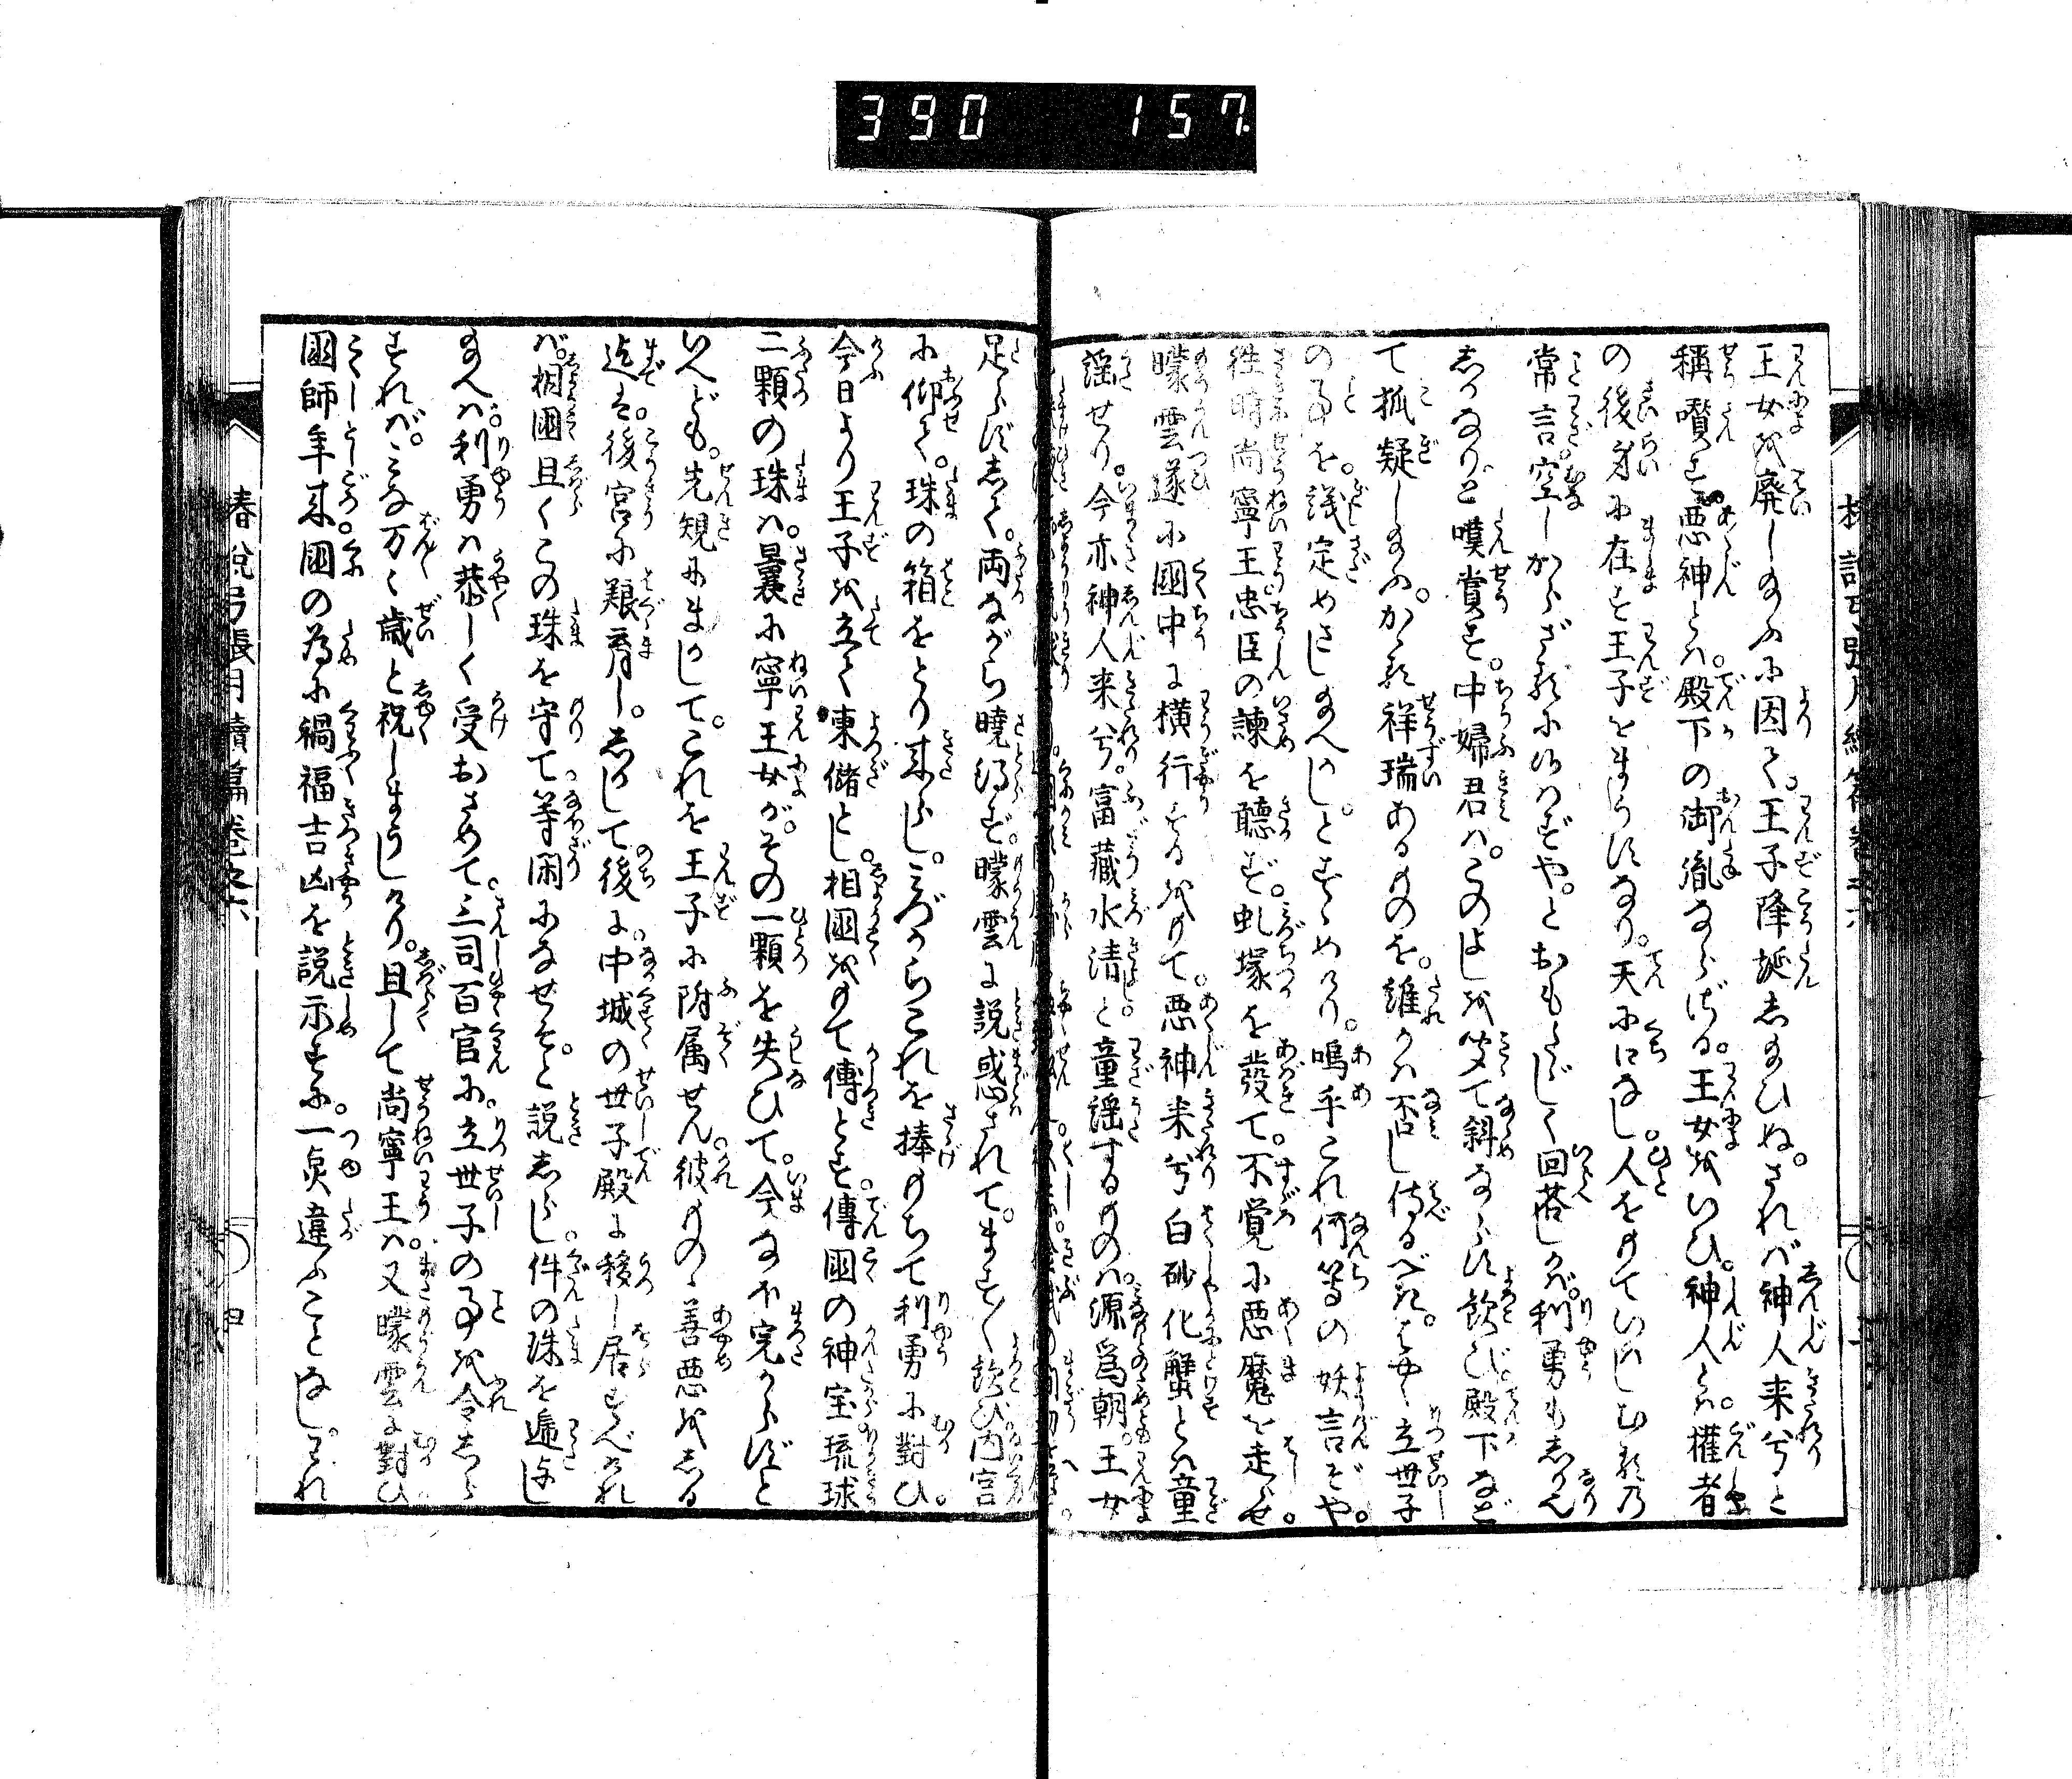 390 157
王女を廃し給ふに因て。王子降誕ましましひぬ。されば神人来兮と
稱嘖す。悪神とは。殿下の御胤ならざる。王女をいひ。神人とは。權者
の後身に在す王子をまうすなり。天に口なし。人をもていはしむる乃
常言。空しからざるに候はずや。とおもたゞしく回答しかば。利勇も
しかなりと嘆賞す。中婦君は。このよしを聞て斜ならず歓び。殿下など
て狐疑し給ふ。かゝる祥瑞あるものを。誰かは否し侍るべき。はやく立世子
の事を。議定めさし給へかし。とすゝめけり。嗚乎これ何等の妖言ぞや。
往時尚寧王忠臣の諫を聴ず。虬塚を發て。不覚に悪魔を走らせ。
矇雲遂に國中に横行するをもて。悪神来兮白砂化蟹とは童
謡せり。今亦神人来兮。富藏水清と童謡するものは。源爲朝。王女
足らずして。両ながら曉得ず。矇雲に説惑されて。ます〳〵歓び。内官
に仰て。珠の箱をとり来らし。みづからこれを捧もちて利勇に對ひ。
今日より王子を立て東儲とし。相國をもて傅とす。傳國の神宝琉球
二顆の珠は。曩に寧王女が。その一顆を失ひて。今なほ完からずと
いへども。先規にまかして。これを王子に附属せん。彼もの善悪をしる
迄は。後宮に艱育し。しかして後に。中城の世子殿に移し居すべけれ
ば。相國且くこの珠を守て。等閑になせそ。と説しらし。件の珠を逓与し
給へば。利勇は恭しく受おさめて。三司百官に。立世子の事を令しら
すれば。みな万々歳と祝しまうしけり。且して尚寧王は。又矇雲に對ひ
國師年来。國の為に禍福吉凶を説示すに。一点違ふことなし。われ
椿說弓張月續篇卷之六